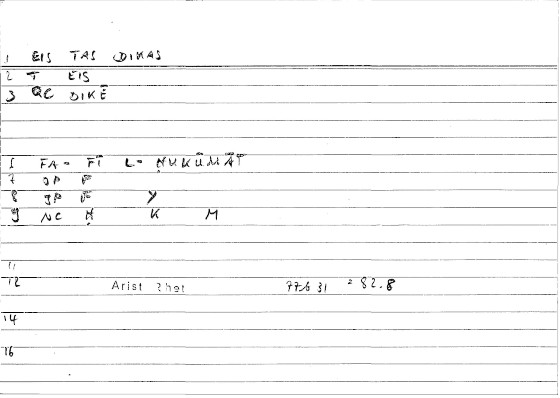 1 EIS TAS DIKAS
2 T EIS
3 QC DIKĒ
FA- FĪ L- ḤUKŪMĀT
7 JP F̄
8 JP F̄ Y
9 NC Ḥ K M
11
12 Arist Rhet 77b31 = 82.8
14
16